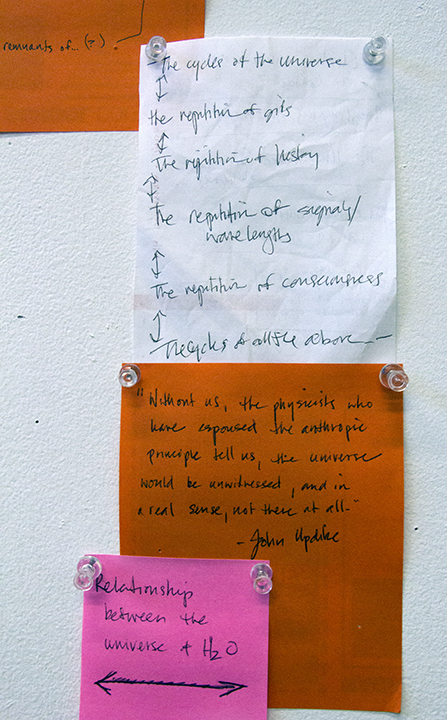 remnants of... (?).
The cycles of the universe
the repetition of grids
The repetition of history
The repetition of signals/
wavelengths
The repetition of consciousness
The cycles of all the above
"Without us, the physicists who
have espoused the anthropic
principle tell us, the universe
would be unwitnessed, and in
a real sense, not there at all."
- John Updike
Relationship
between the
universe + H2O